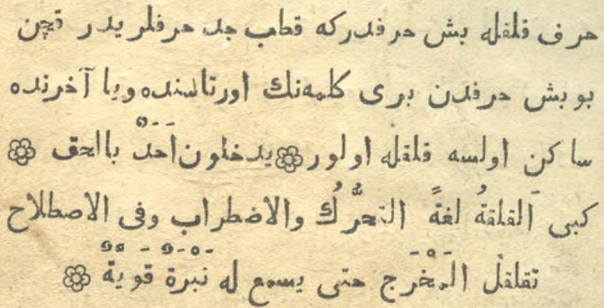 حرف قلقله بش حرفدركه قطب جد حرفلريدر قچن
بو بش حرفدن برى كلمه‌نك اورتاسنده ويا آخرنده
ساكن اولسه قلقله اولور ۞ يدخلون اَحَدْ بالحق ۞
كبى اَلقلقةُ لغةً التحرُّكُ والاضطراب وفى الاصطلاح
تقلقل المَخْرَج حتى يسمع له نَبْرَةٌ قَوِيَّةٌ ۞